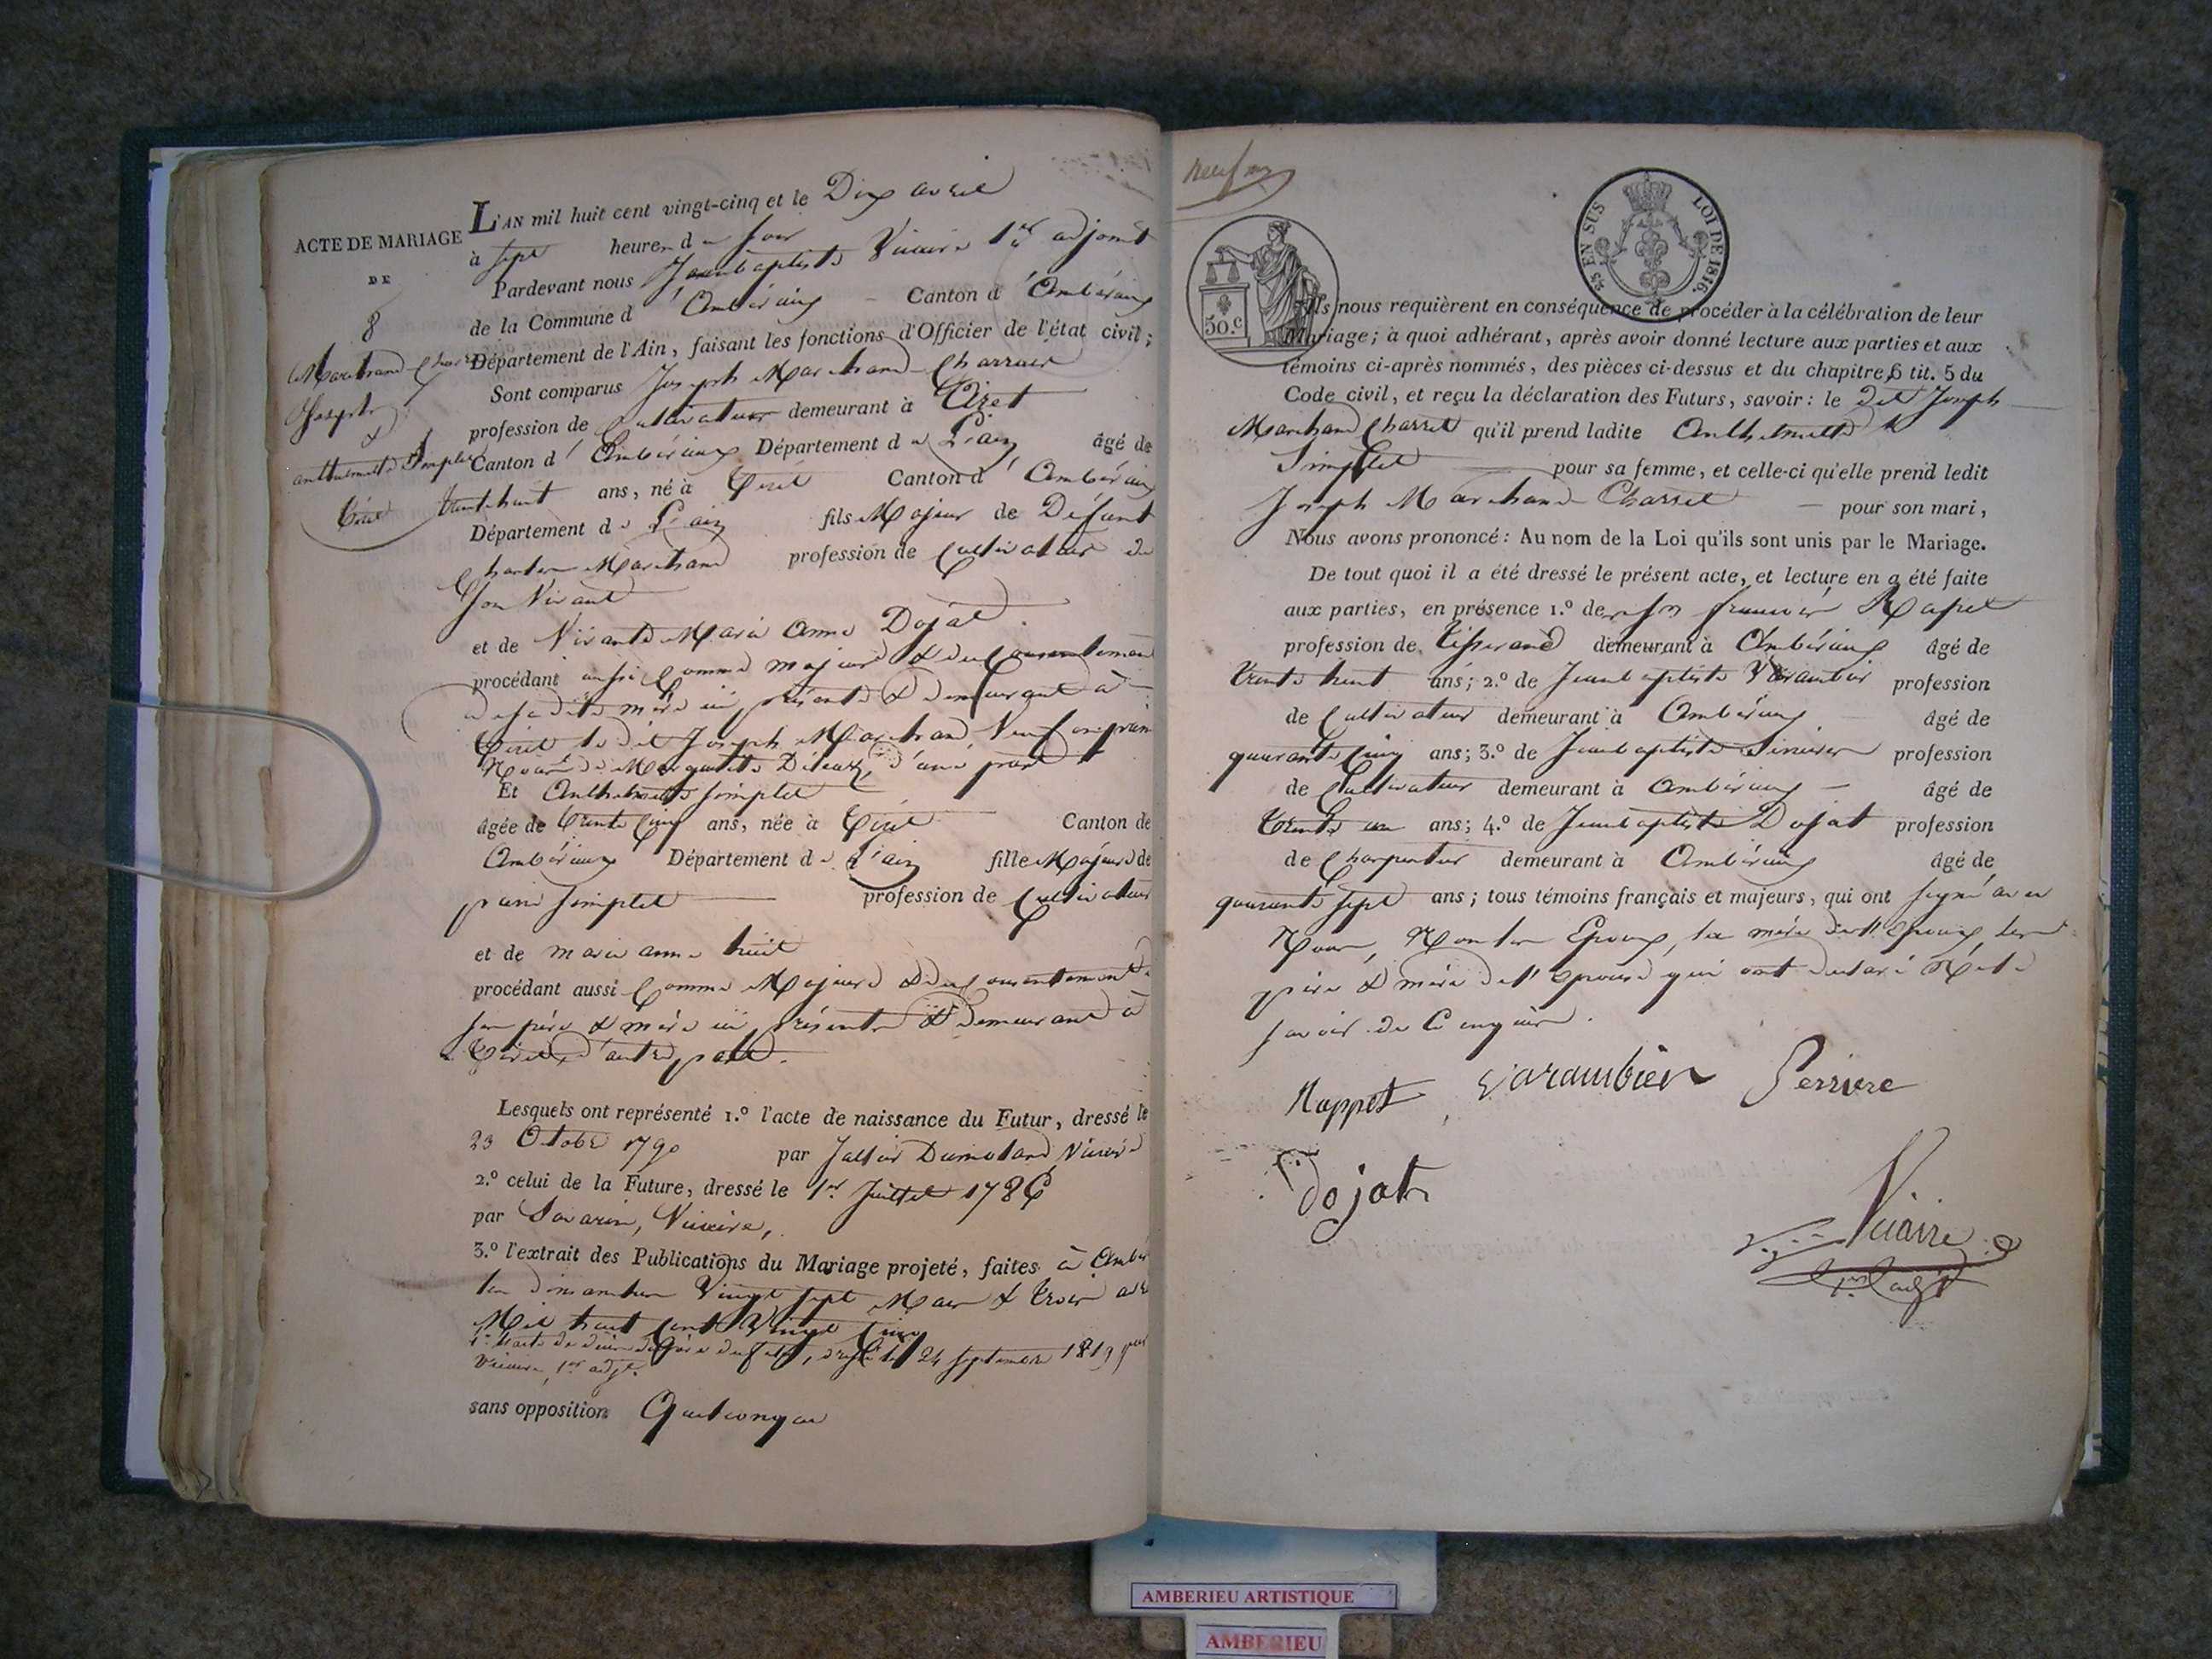 ACTE DE MARIAGE
DE
8
Marchand Charret
Joseph
&
anthelmette Simplet
Tiret
L'AN mil huit cent vingt-cinq et le Dix avril
à sept heures du soir
Pardevant nous Jeanbaptiste Vicaire 1er adjoint
de la Commune d'Ambérieux Canton d'Ambérieux
Département de l'Ain, faisant les fonctions d'Officier de l'état civil;
Sont comparus Joseph Marchand Charret
profession de Cultivateur demeurant à Tiret
Canton d'Ambérieux Département de L'ain âgé de
trentehuit ans, né à Tiret Canton d'Ambérieux
Département de L'ain fils Majeur de Défunt
Charles Marchand profession de Cultivateur de
Son Vivant
et de Vivante Marie Anne Dojat
procédant aussi Comme majeur & du Consentement
de sadite mère ici présente & demeurant à
Tiret le dit Joseph Marchand Veuf en
de Marguerite d'une part
Et Anthelmette Simplet
âgée de trente Cinq ans, née à Tiret Canton de
Ambérieux Département de L'ain fille Majeure de
Simplet profession de Cultivateur
et de marie anne
procédant aussi Comme Majeure & du Consentement de
ses père & mère ici présents & Demeurant à
Tiret, d'autre part.
Lesquels ont représenté 1.º l'acte de naissance du Futur, dressé le
23 Octobre 1790 par Dumolard Vicaire
2.º celui de la Future, dressé le 1er Juillet 1786
par Savarin, Vicaire,
3.º l'extrait des Publications du Mariage projeté, faites à Ambér
les dimanches Vingt sept Mars & trois avril
Mil huit Cent Vingt Cinq
4º l'acte de décès du père du futur, dressé le 24 septembre 1819 par
Vicaire, 1er adjt.
sans opposition Quelconque
50.C
25 EN SUS LOI DE 1816.
Ils nous requièrent en conséquence de procéder à la célébration de leur
Mariage; à quoi adhérant, après avoir donné lecture aux parties et aux
témoins ci-après nommés, des pièces ci-dessus et du chapitre 6 tit. 5 du
Code civil, et reçu la déclaration des Futurs, savoir: le dit Joseph
Marchand Charret qu'il prend ladite Anthelmette
Simplet pour sa femme, et celle-ci qu'elle prend ledit
Joseph Marchand Charret pour son mari,
Nous avons prononcé: Au nom de la Loi qu'ils sont unis par le Mariage.
De tout quoi il a été dressé le présent acte, et lecture en a été faite
aux parties, en présence 1.º de françois Rapet
profession de tisserand demeurant à Ambérieux âgé de
trente huit ans; 2.º de Jeanbaptiste Varambier profession
de Cultivateur demeurant à Ambérieux âgé de
quarante Cinq ans; 3.º de Jeanbaptiste profession
de Cultivateur demeurant à Ambérieux âgé de
trente un ans; 4.º de Jeanbaptiste Dojat profession
de Charpentier demeurant à Ambérieux âgé de
quarante sept ans; tous témoins français et majeurs, qui ont signé avec
Nous, Non les Epoux, la mère de l'Epoux, les
père & mère de l'Epouse qui ont déclaré Ne le
savoir de Ce enquis.
Rappet Varambier Perriere
Dojat
Vicaire
1er adjt
AMBERIEU ARTISTIQUE
AMBERIEU